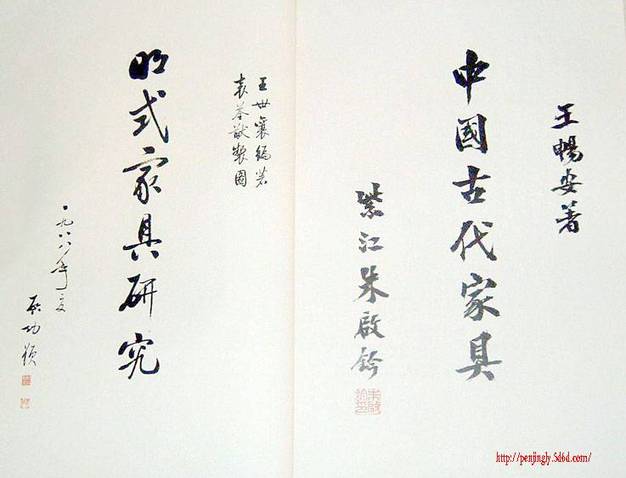 王暢安著
中國古代家具
紫江朱啟鈐
王世襄編著
袁荃猷製圖
明式家具研究
一九八八年夏
启功題
http://penjingly.5d6d.com/